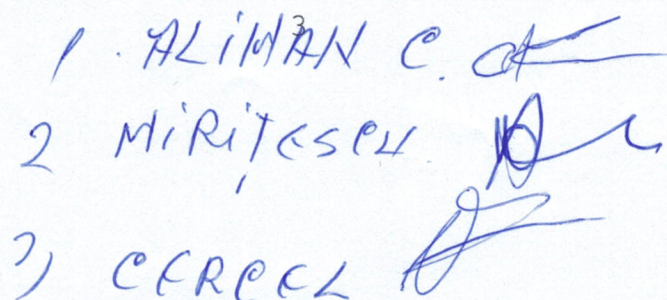 1. ALIMAN C.
2 MIRIȚESCU
3) CERCEL